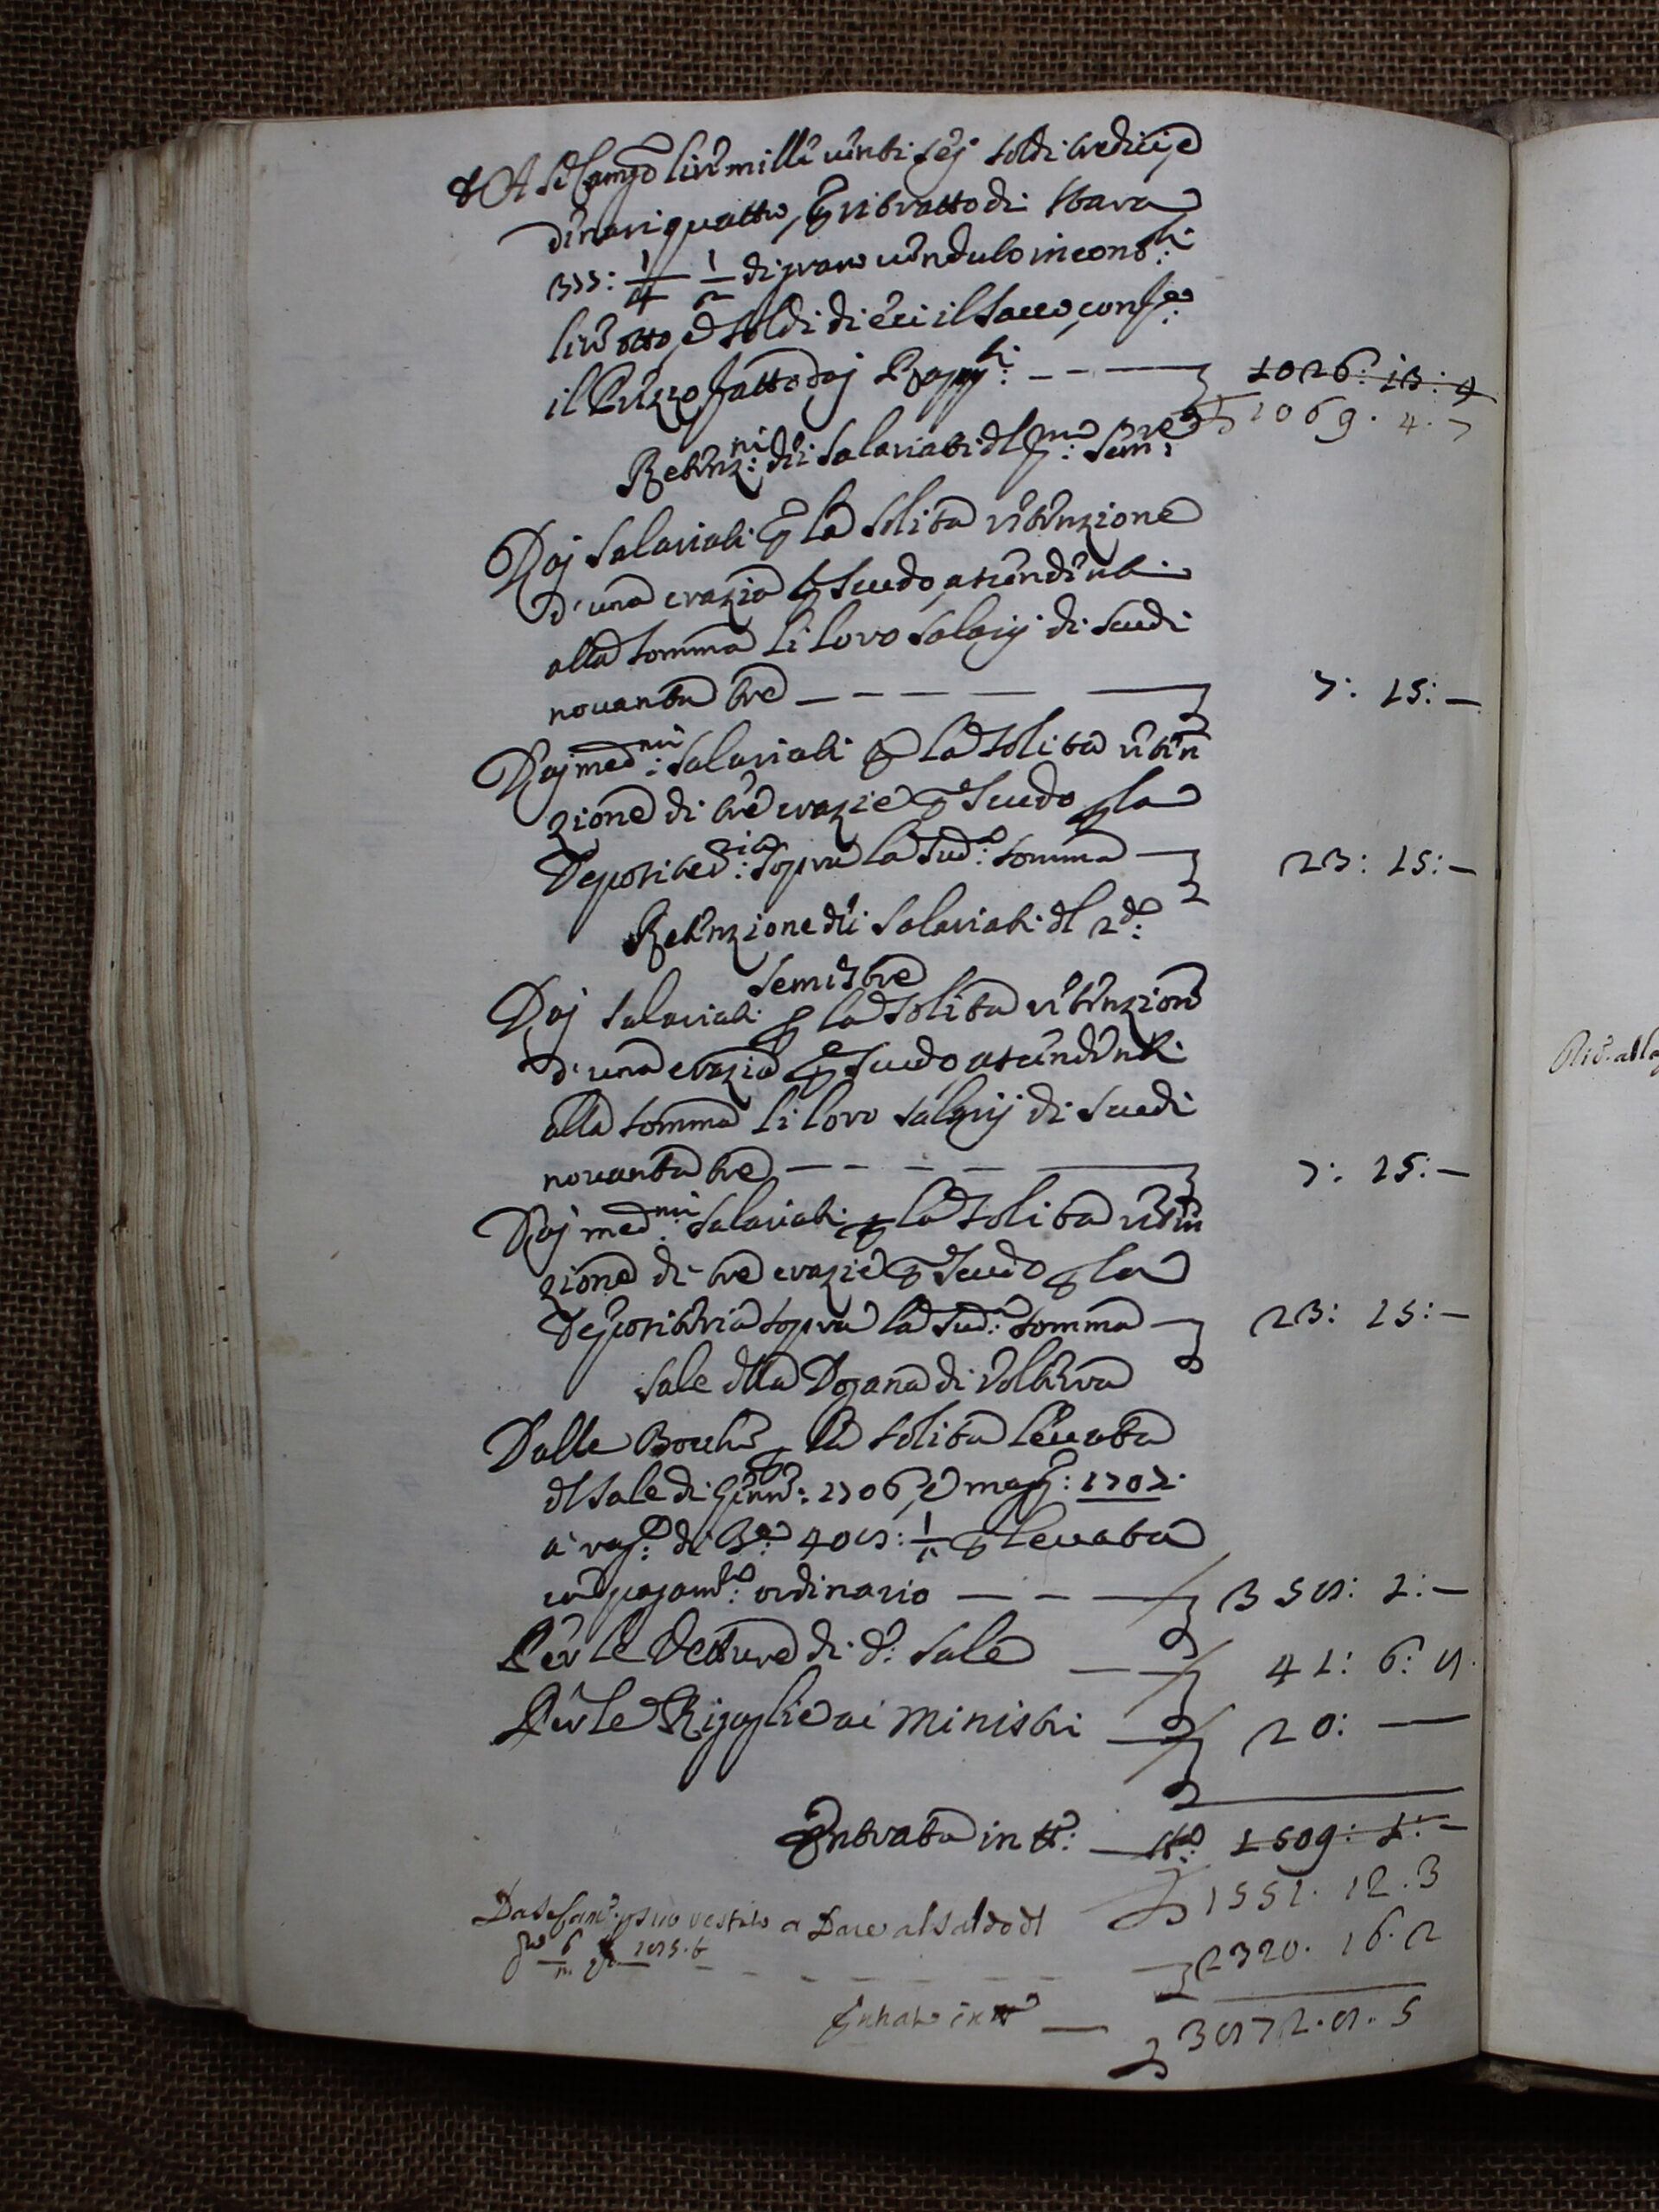 A dì lire mille venti sej soldi tredici, e
dinari quattro, p ritratto di Stara
335: 1/4 1/2 di grano venduto in conti
lire otto, e soldi dieci il Sacco, conf.e
il Prezzo fatto daj Rapp.ti 1026: 13: 4
1069. 4. 7
Retenz.ni dei Salariati dl p.mo Sem.re
Daj Salariati p la solita ritenzione
d'una crazia p Scudo, ascendenti
alla somma li loro Salarij di Scudi
novanta tre 7: 15: —
Daj med.mi Salariati p la solita riten
zione di tre crazie p Scudo p la
Depositeria sopra la sud.a somma 23: 15: —
Retenzione dei Salariati dl 2.do
Semestre
Daj Salariati p la solita ritenzione
d'una crazia p Scudo, ascendenti
alla somma li loro Salarij di Scudi
novanta tre 7: 15: —
Daj med.mi Salariati p la solita riten
zione di tre crazie p Scudo p la
Depositeria sopra la sud.a somma 23: 15: —
Sale dlla Dogana di Volterra
Dalle Bocche p la solita levata
dl Sale di Genn.: 1706, e magg.: 1707.
a rag.e di B.e 408: 1/2 p levata
pagam.to ordinario 358: 1: —
Per le Vetture di d.o Sale 41: 6: 8.
Per le Rigaglie ai Ministri 20: —
Entrata in tt.o 1509: 1: —
1551. 12. 3
Da suo vestito a Dare al saldo dl
2320. 16. 2
Entrata in tt.o 3872. 8. 5